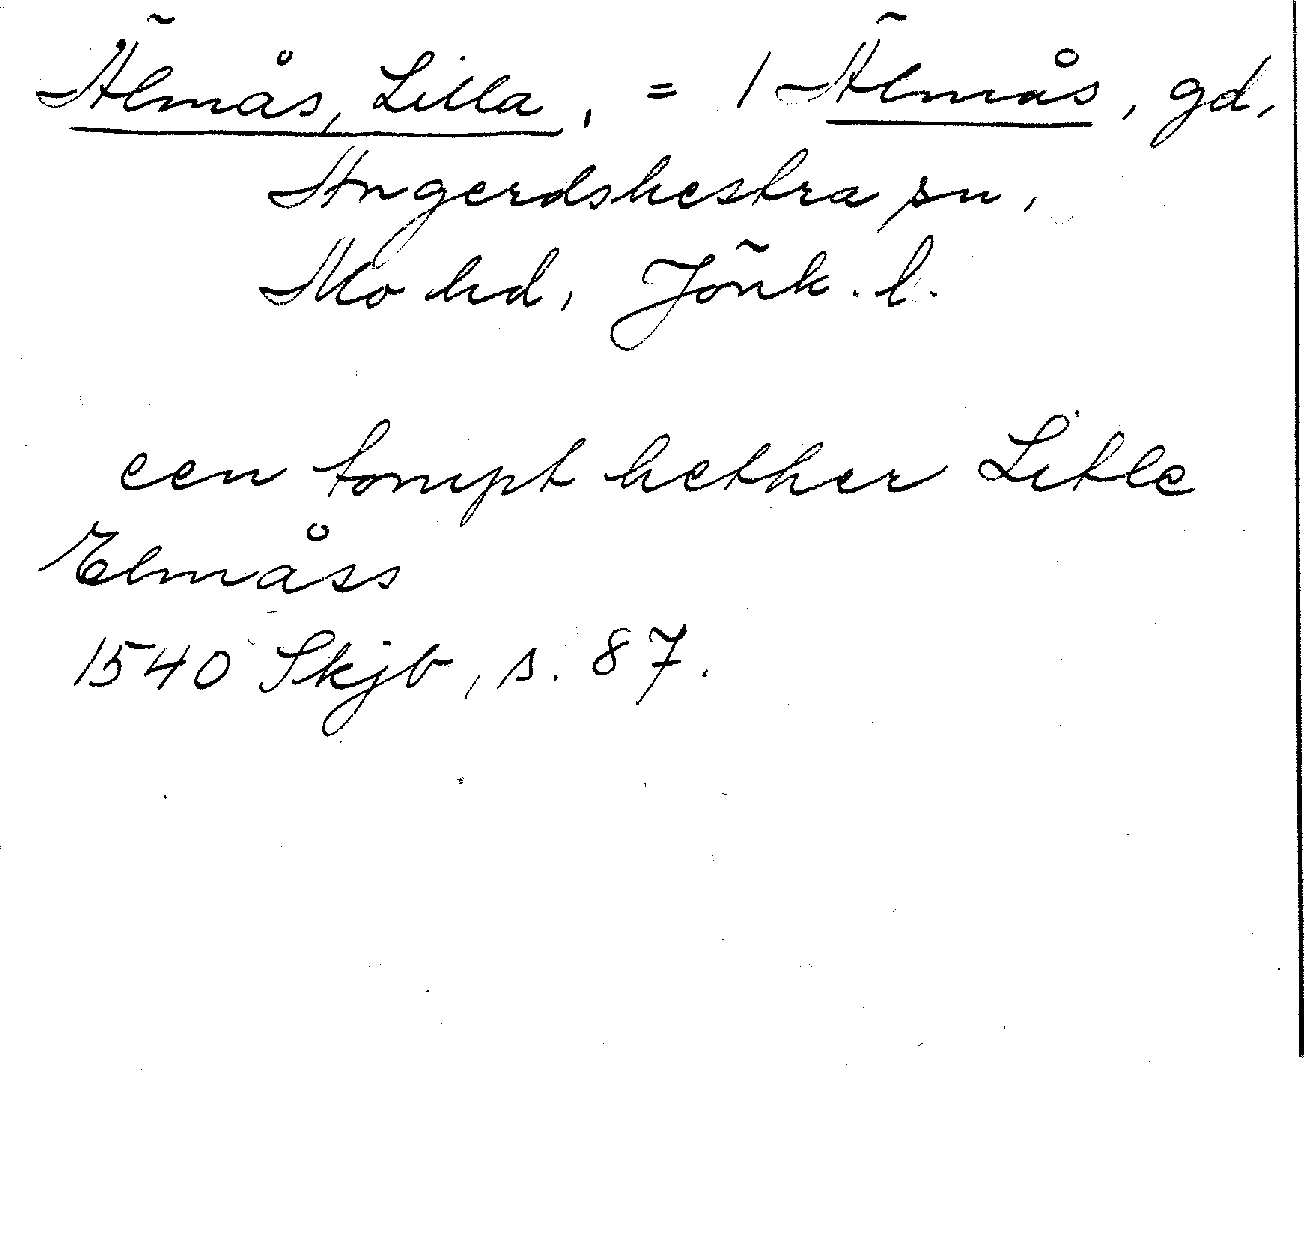 Älmås, Lilla, = 1 Älmås, gd,
Angerdshestra sn,
Mo hd, Jönk. l.
een tompt hether Litle
Elmåss
1540 Skjb, s. 87.